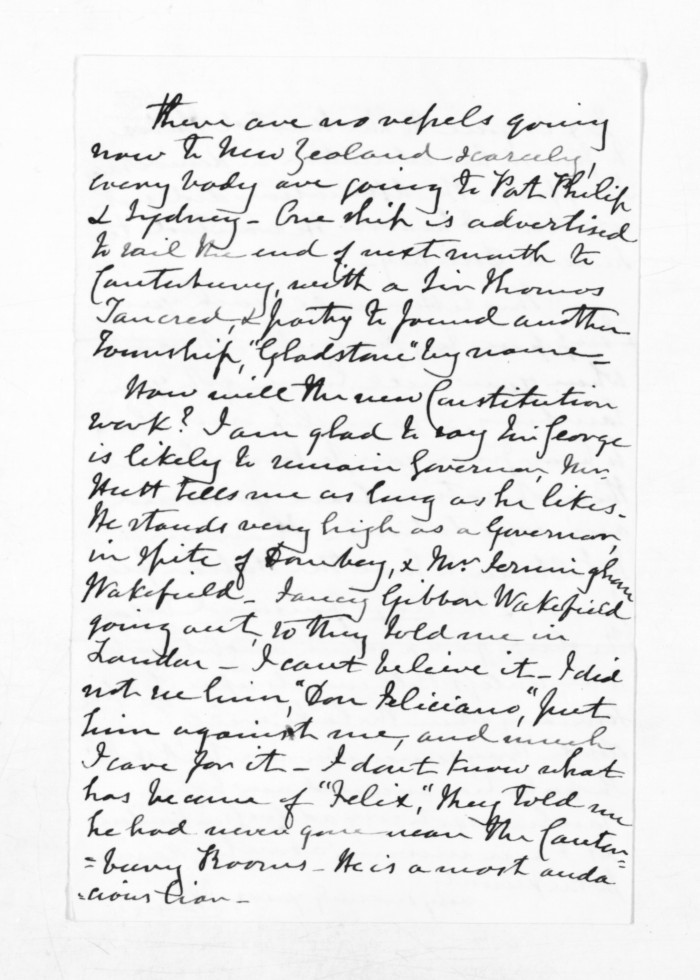 There are no vessels going
now to New Zealand scarcely,
every body are going to Port Philip
& Sydney - One ship is advertised
to sail the end of next month to
Canterbury, with a Sir Thomas
Tancred, & party to found another
Township, "Gladstone" by name =
How will the new Constitution
work? I am glad to say Sir George
is likely to remain Governor, Mr.
Hutt tells me as long as he likes.
He stands very high as a Governor,
in spite of Dombey, & Mr. Jerningham
Wakefield - Fancy Gibbon Wakefield
going out, so they told me in
London - I cant believe it - I did
not see him, "Don Feliciano", put
him against me, and much
I care for it - I dont know what
has became of "Felix", they told me
he had never gone near the Canter=
=bury Rooms - He is a most auda
=cious liar -